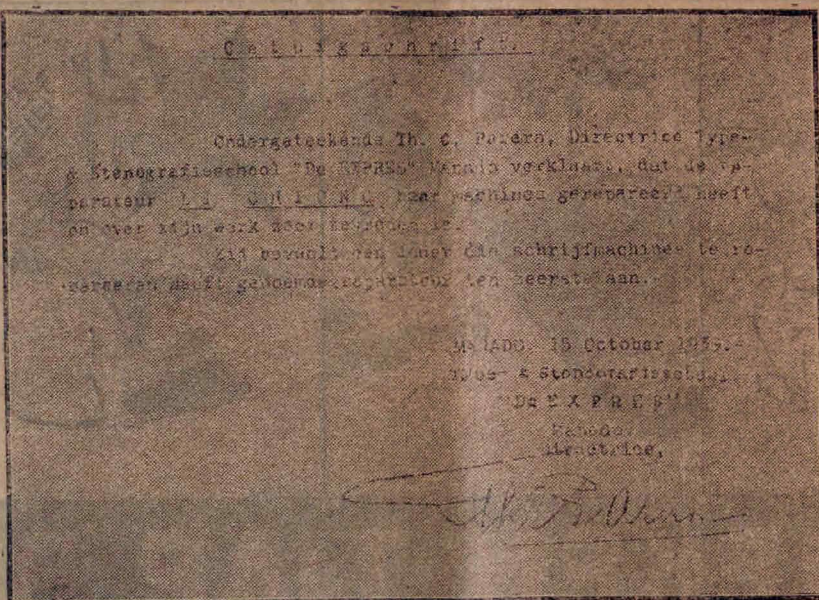 Getuigschrift.
Ondergeteekende Th. C. Parera, Directrice Type-
& Stenografieschool "De EXPRES" Manado verklaart, dat de re-
parateur haar machines gerepareerd heeft
en over zijn werk zeer tevreden is.
Zij beveelt een ieder die schrijfmachines te re-
pareeren heeft genoemde reparateur ten zeerste aan.-
MANADO, 15 October 1939.-
Type- & Stenografieschool
"De E X P R E S"
Manado.
Directrice,